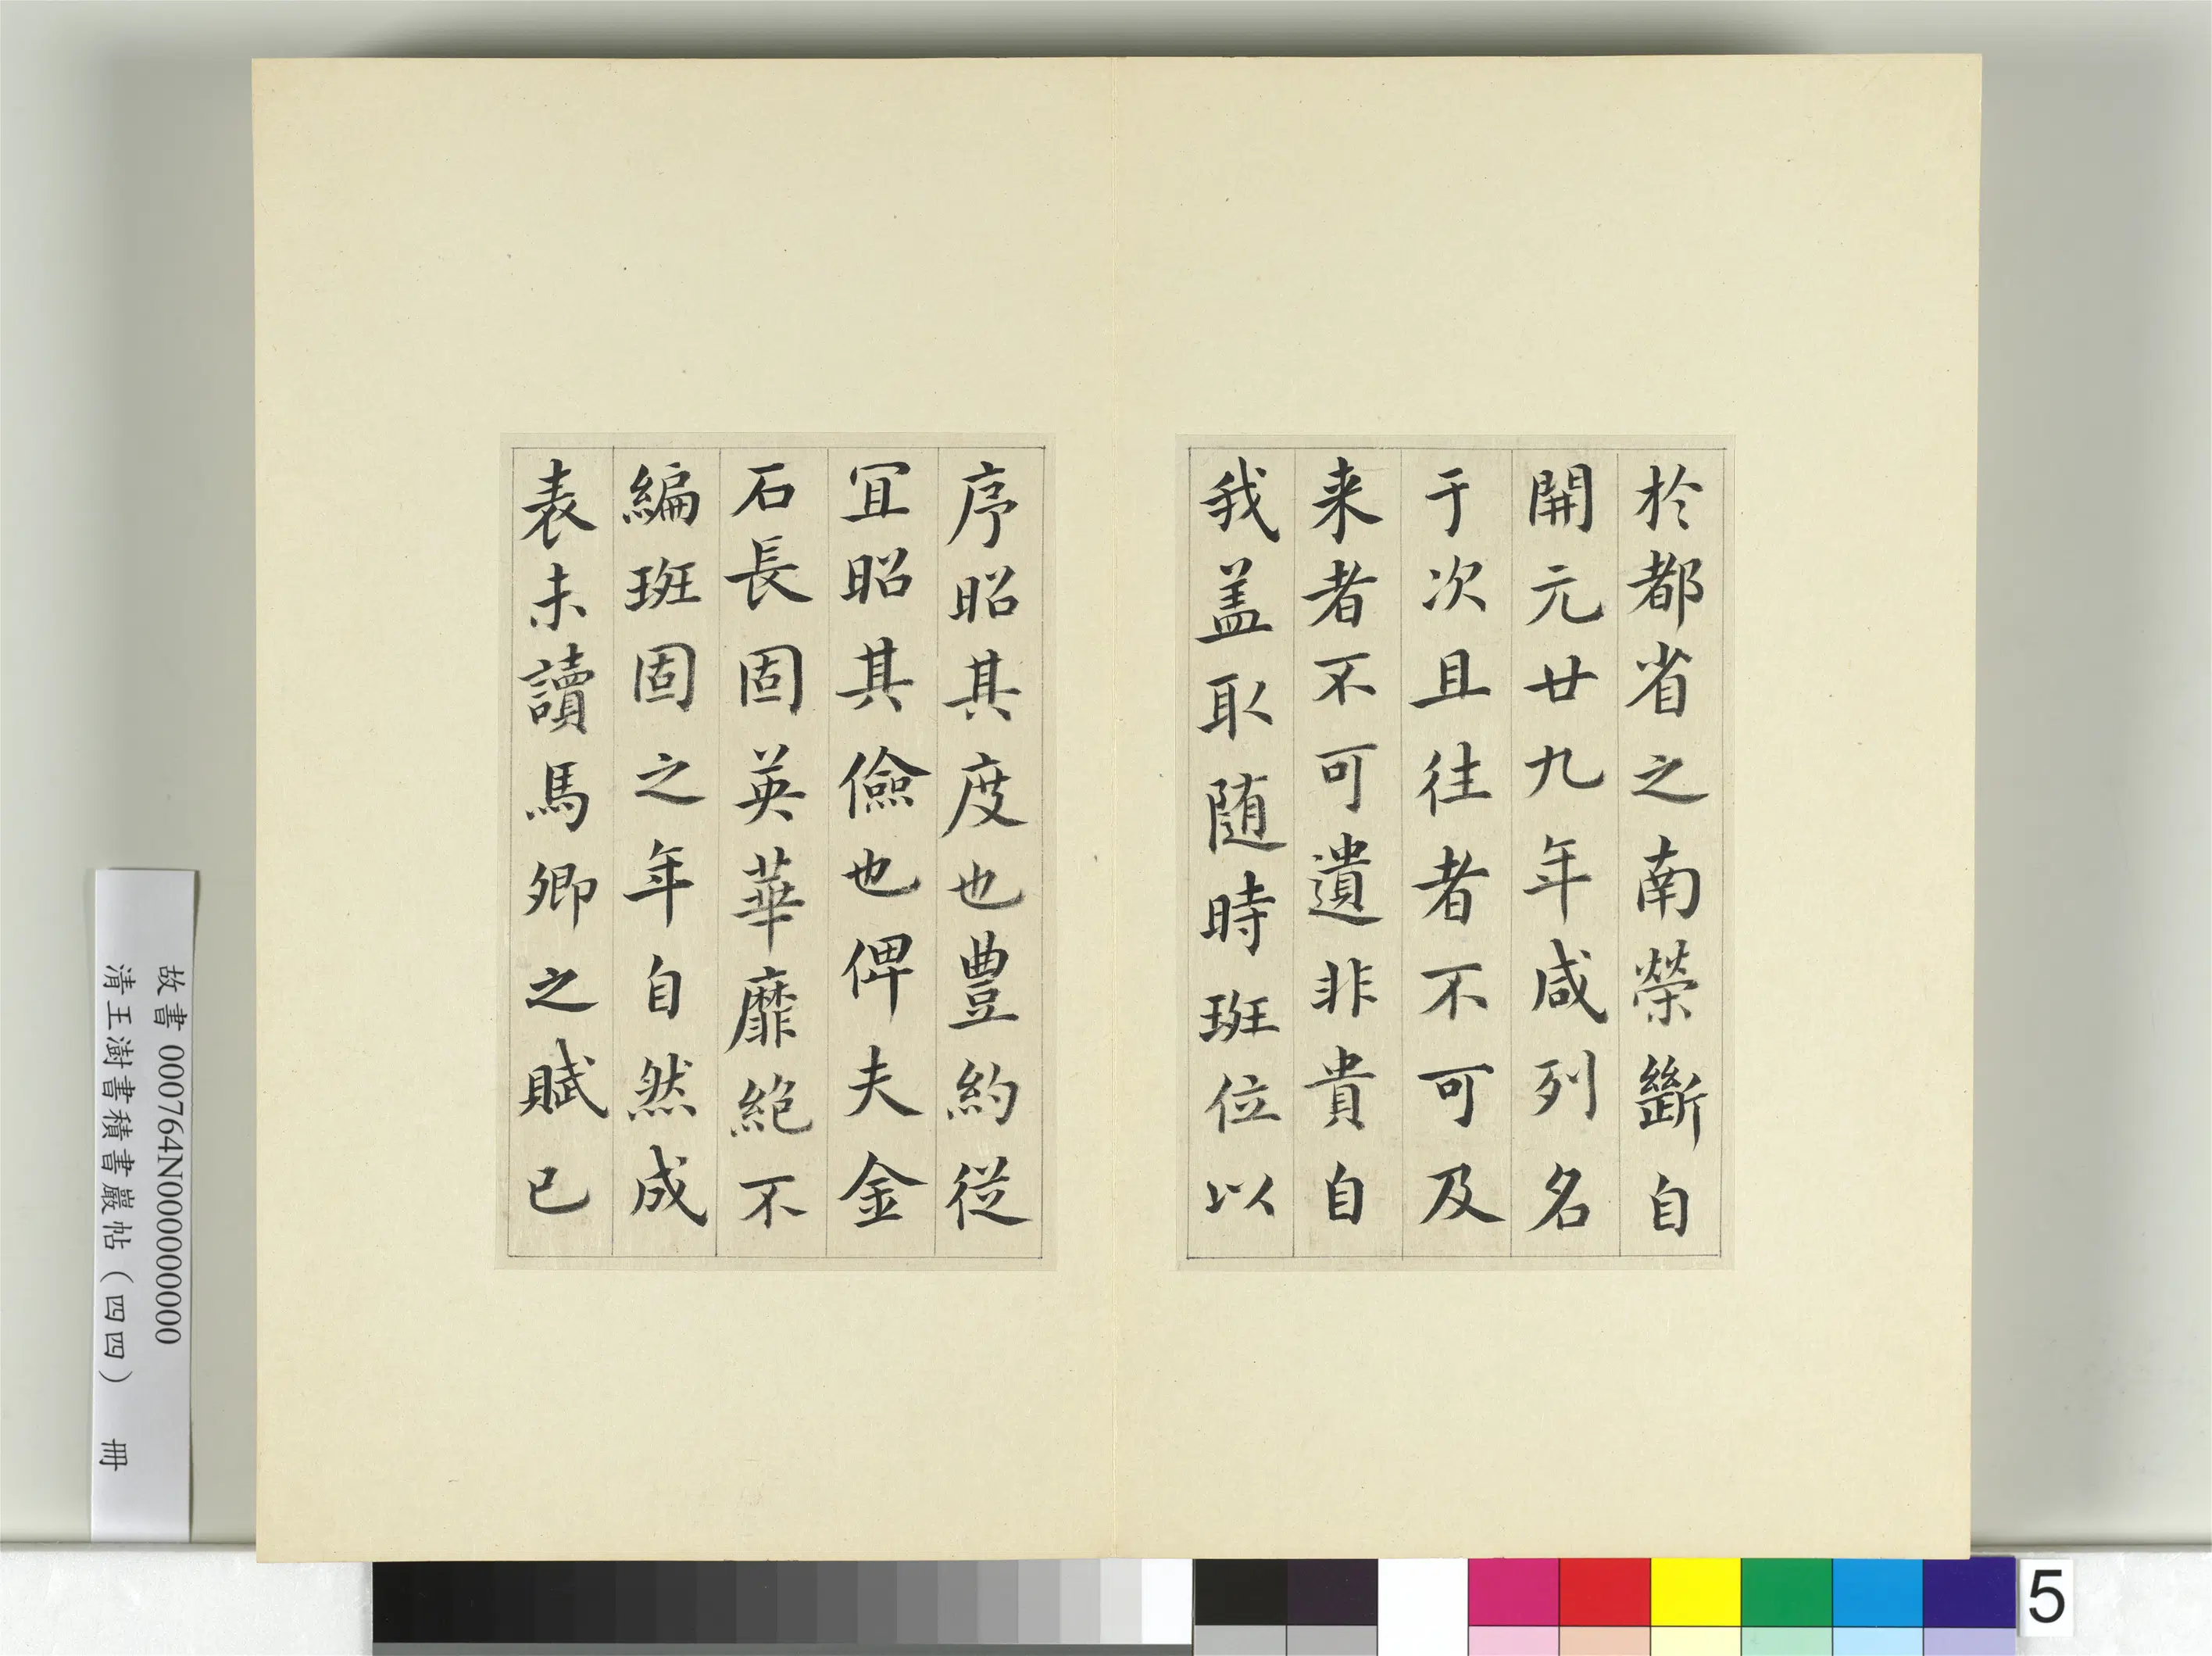 於都省之南榮斷自
開元廿九年咸列名
于次且往者不可及
来者不可遺非貴自
我盖取随時班位以
序昭其度也豊約從
冝昭其儉也俾夫金
石長固英華靡絶不
編班固之年自然成
表未讀馬卿之賦已
故書 000764N000000000
清王澍書積書巖帖（四四） 冊
5